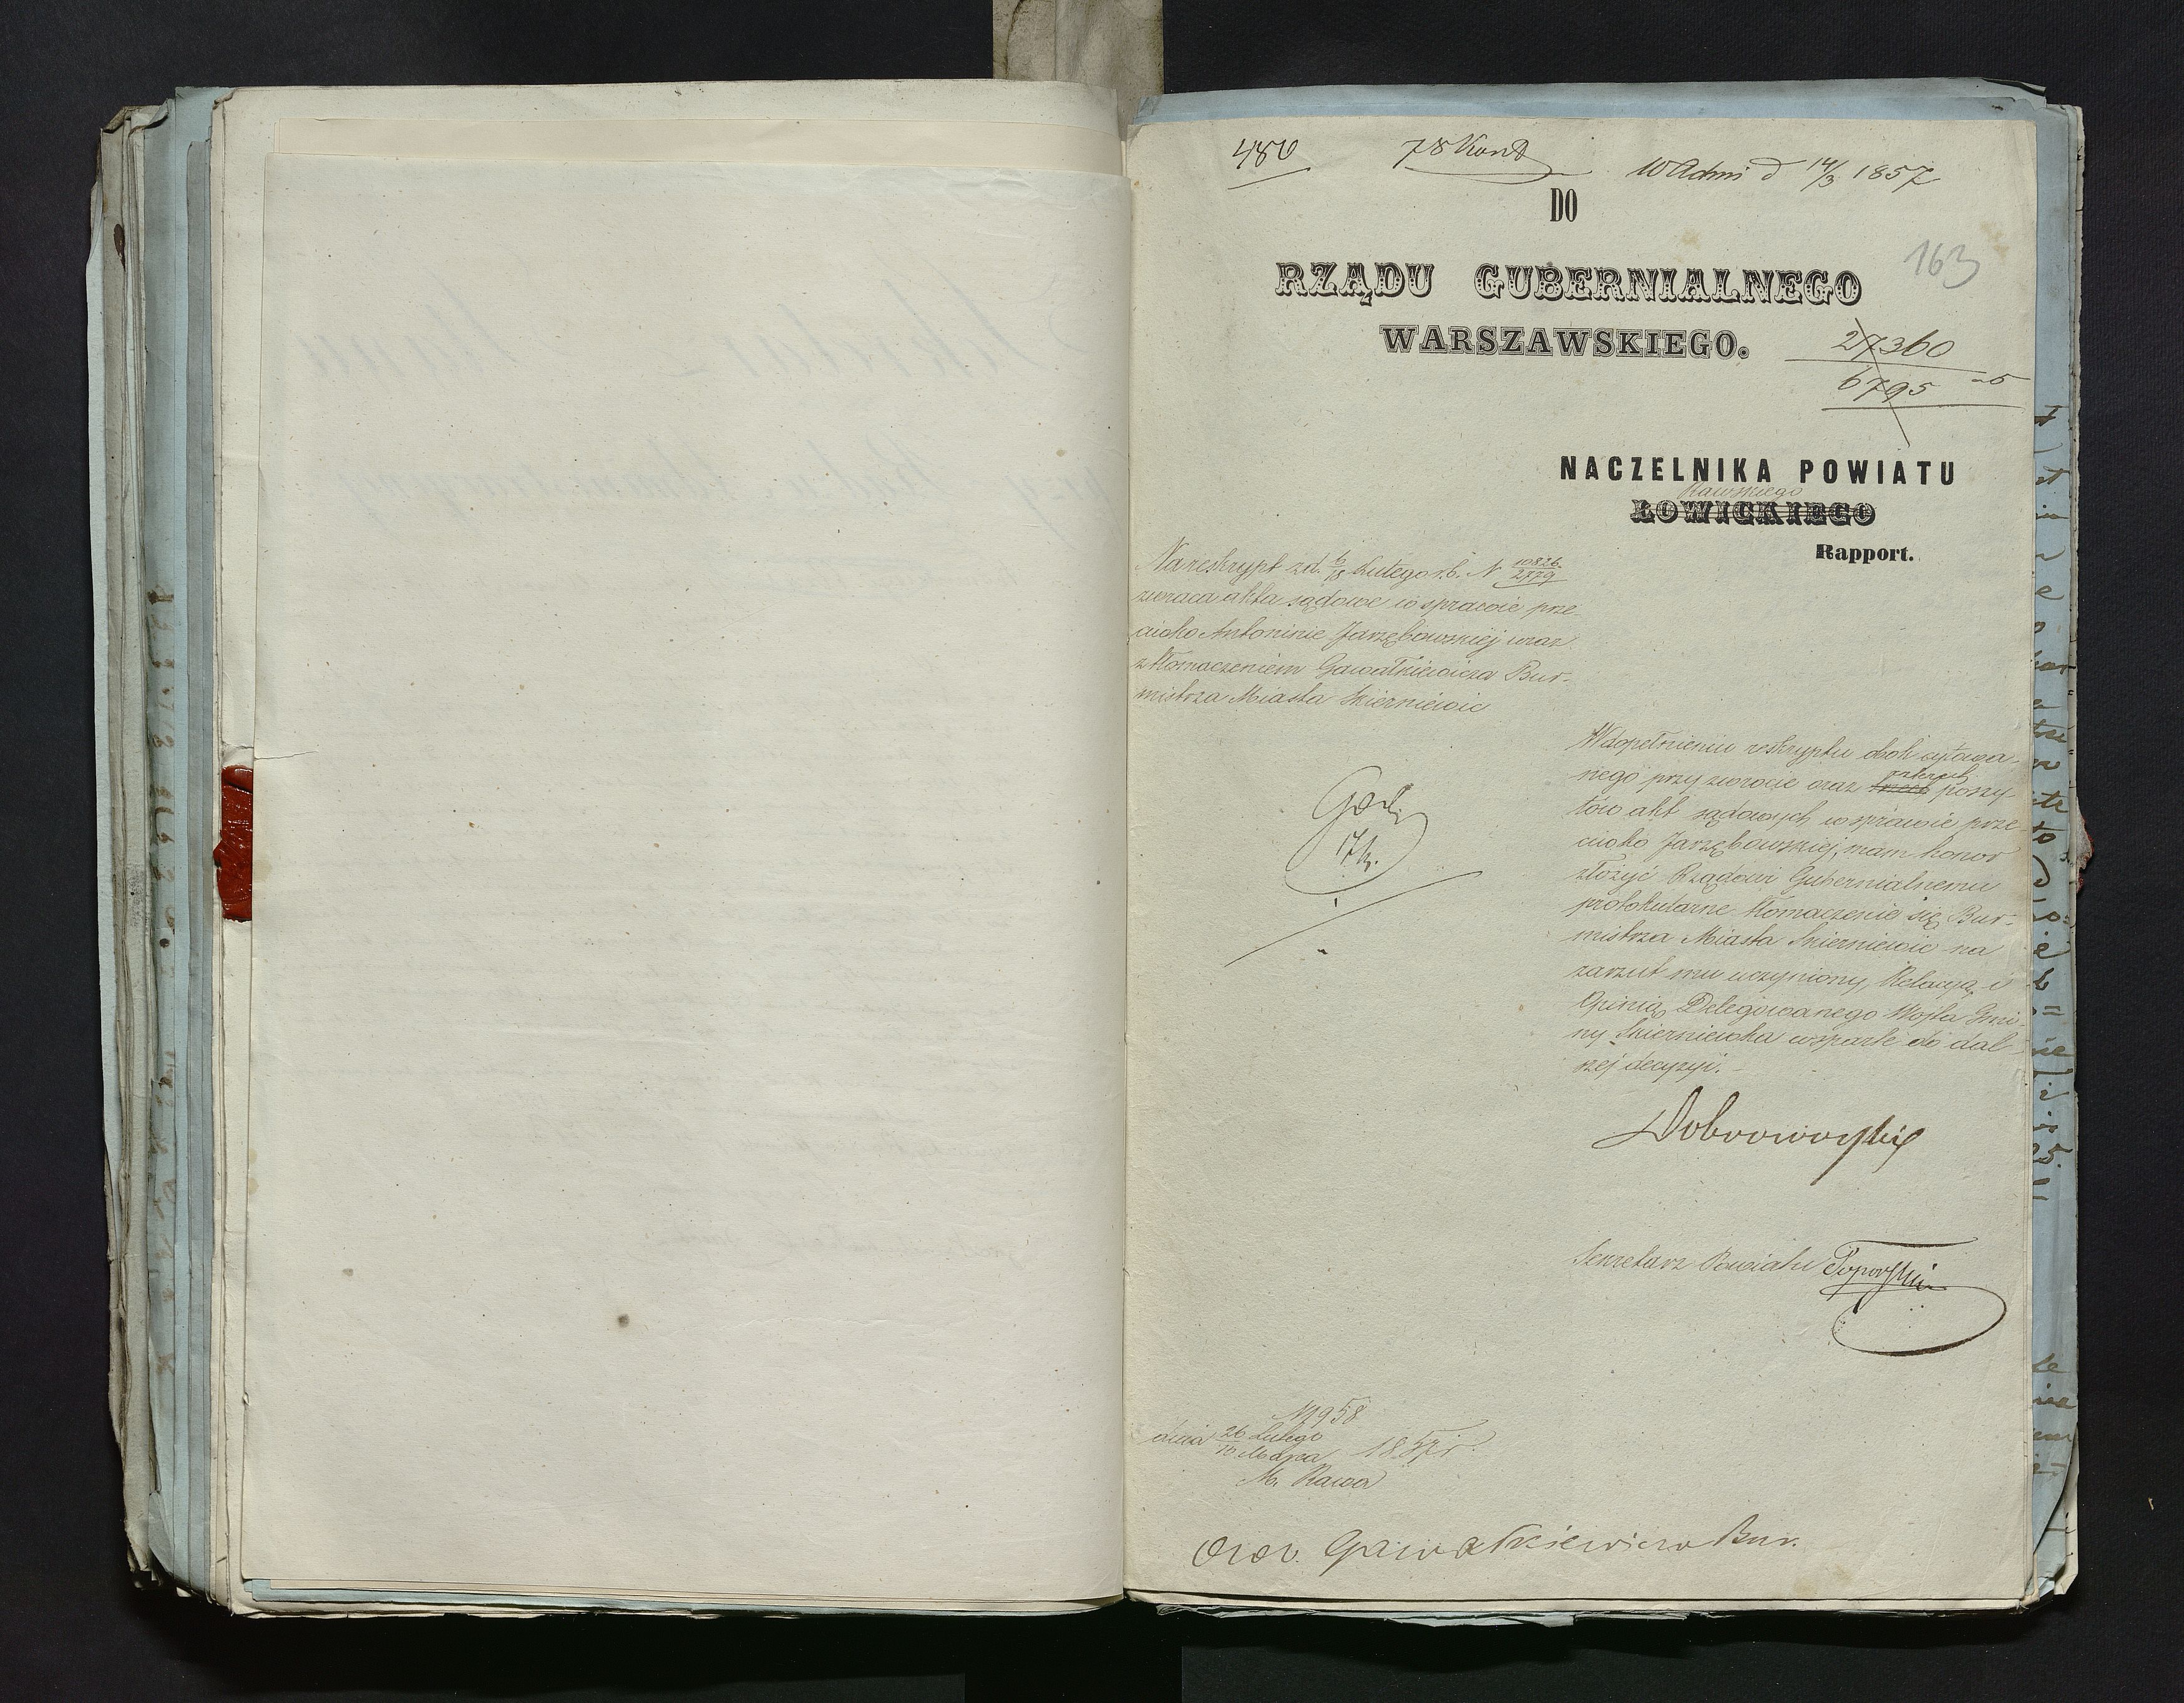 480
78
W Adm d 14/3 1857
DO
RZĄDU GUBERNIALNEGO
163
WARSZAWSKIEGO.
27360
6795
NACZELNIKA POWIATU
Rawskiego
ŁOWICKIEGO
Rapport.
Na reskrypt z d. 6/18 Lutego r.b. N 10826/2779
zwraca akta sądowe w sprawie prze
ciwko Antoninie Jarzębowskiej wraz
z tłomaczeniem Gawatkiewicza Bur-
mistrza Miasta Skierniewic
W dopełnieniu reskryptu obok cytowa-
nego przy zwrocie oraz trzech czterech poszy
tów akt sądowych w sprawie prze
ciwko Jarzębowskiej, mam honor
złożyć Rządowi Gubernialnemu
protokularne tłomaczenie się Bur-
mistrza Miasta Skierniewic na
zarzut mu uczyniony, Relacyą i
Opinią Delegowanego Wojta Gmi
ny Skierniewka wsparte do dal
szej decyzyi. -
17/3.
Dobrowolski
Sekretarz Powiatu Toporski
N 2958
dnia 26 Lutego/10 Marca 1857 r.
M. Rawa
Gawatkiewicza Bur.